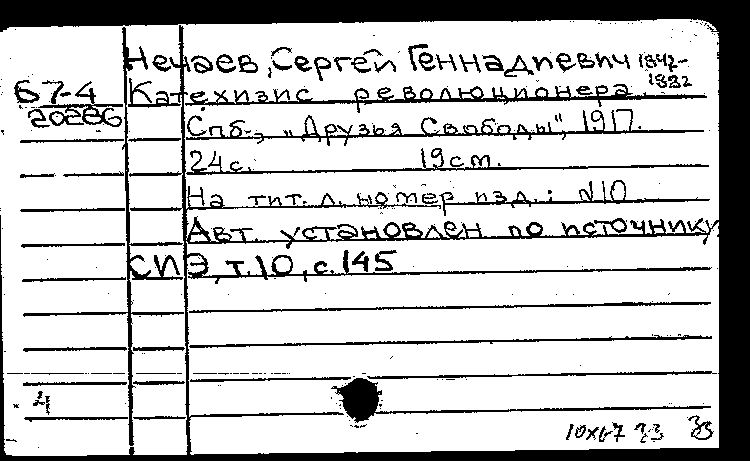 Нечаев, Сергей Геннадиевич 1842-
1882
67-4 Катехизис революционера.
20286 Спб., "Друзья Свободы", 1917.
24с. 19cm.
На тит. л. номер изд.: №10
Авт. установлен по источнику:
СИЭ, т.10, с.145
4
10X67 33 33